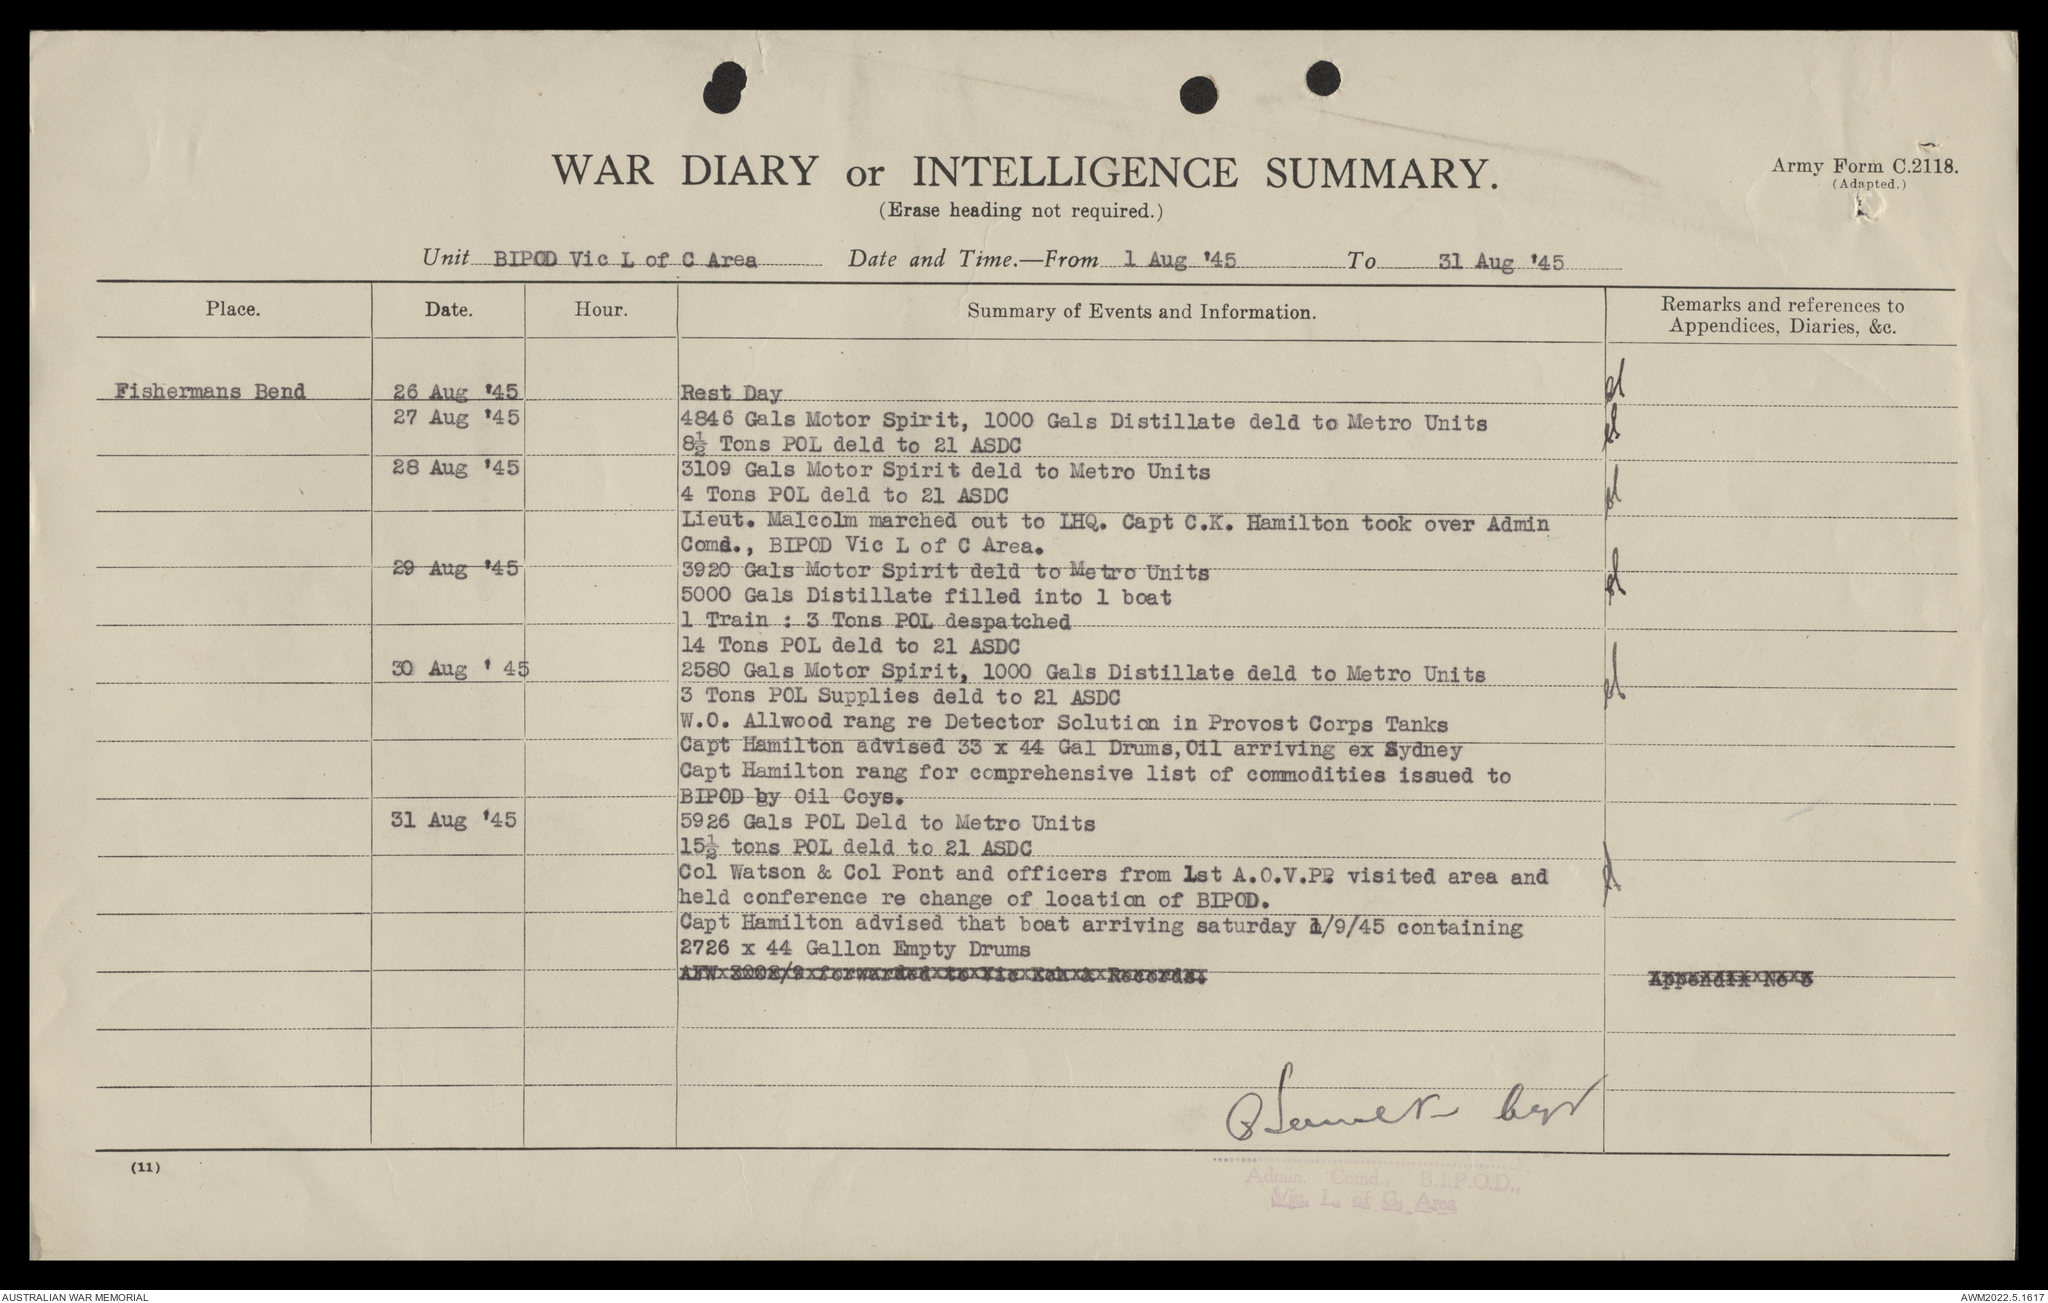 WAR DIARY or INTELLIGENCE SUMMARY.
Army Form C.2118.
(Adapted.)
(Erase heading not required.)
Unit BIPOD Vic L of C Area Date and Time.—From 1 Aug '45 To 31 Aug '45
Place. Date. Hour. Summary of Events and Information. Remarks and references to
Appendices, Diaries, &c.
Fishermans Bend 26 Aug '45 Rest Day
27 Aug '45 4846 Gals Motor Spirit, 1000 Gals Distillate deld to Metro Units
8½ Tons POL deld to 21 ASDC
28 Aug '45 3109 Gals Motor Spirit deld to Metro Units
4 Tons POL deld to 21 ASDC
Lieut. Malcolm marched out to LHQ. Capt C.K. Hamilton took over Admin
Comd., BIPOD Vic L of C Area.
29 Aug '45 3920 Gals Motor Spirit deld to Metro Units
5000 Gals Distillate filled into 1 boat
1 Train : 3 Tons POL despatched
14 Tons POL deld to 21 ASDC
30 Aug ' 45 2580 Gals Motor Spirit, 1000 Gals Distillate deld to Metro Units
3 Tons POL Supplies deld to 21 ASDC
W.O. Allwood rang re Detector Solution in Provost Corps Tanks
Capt Hamilton advised 33 x 44 Gal Drums, Oil arriving ex Sydney
Capt Hamilton rang for comprehensive list of commodities issued to
BIPOD by Oil Coys.
31 Aug '45 5926 Gals POL Deld to Metro Units
15½ tons POL deld to 21 ASDC
Col Watson & Col Pont and officers from 1st A.O.V.PP. visited area and
held conference re change of location of BIPOD.
Capt Hamilton advised that boat arriving saturday 1/9/45 containing
2726 x 44 Gallon Empty Drums
forwarded to Vic Ech & Records. Appendix No 3
Capt
(11)
Admin. Comd., B.I.P.O.D.,
Vic. L. of C. Area
AUSTRALIAN WAR MEMORIAL
AWM2022.5.1617